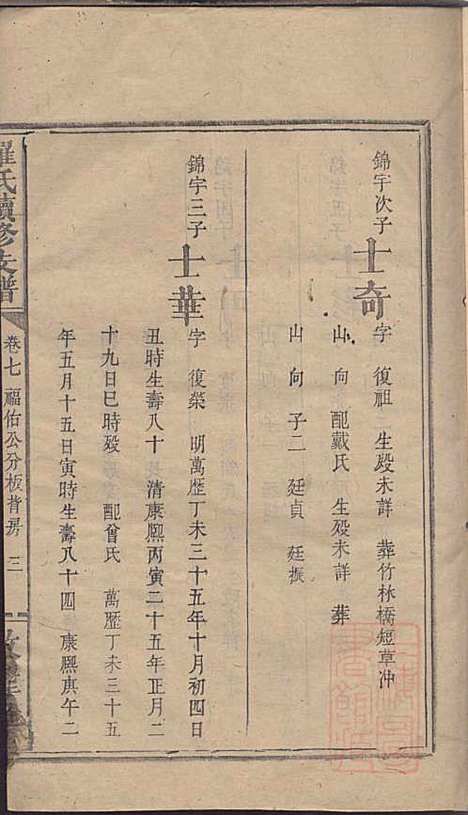 錦宇次子
士奇
字 復祖 生殁未詳 葬竹林橋短草冲
山 向 配戴氏 生殁未詳 葬
山 向 子二 廷貞 廷振
錦宇三子
士華
字 復榮 明萬歷丁未三十五年十月初四日
丑時生壽八十 清康熙丙寅二十五年正月二
十九日巳時殁 配曾氏 萬歷丁未三十五
年五月十五日寅時生壽八十四 康熙庚午二
羅氏續修支譜
卷七 福佑公分板背房 三